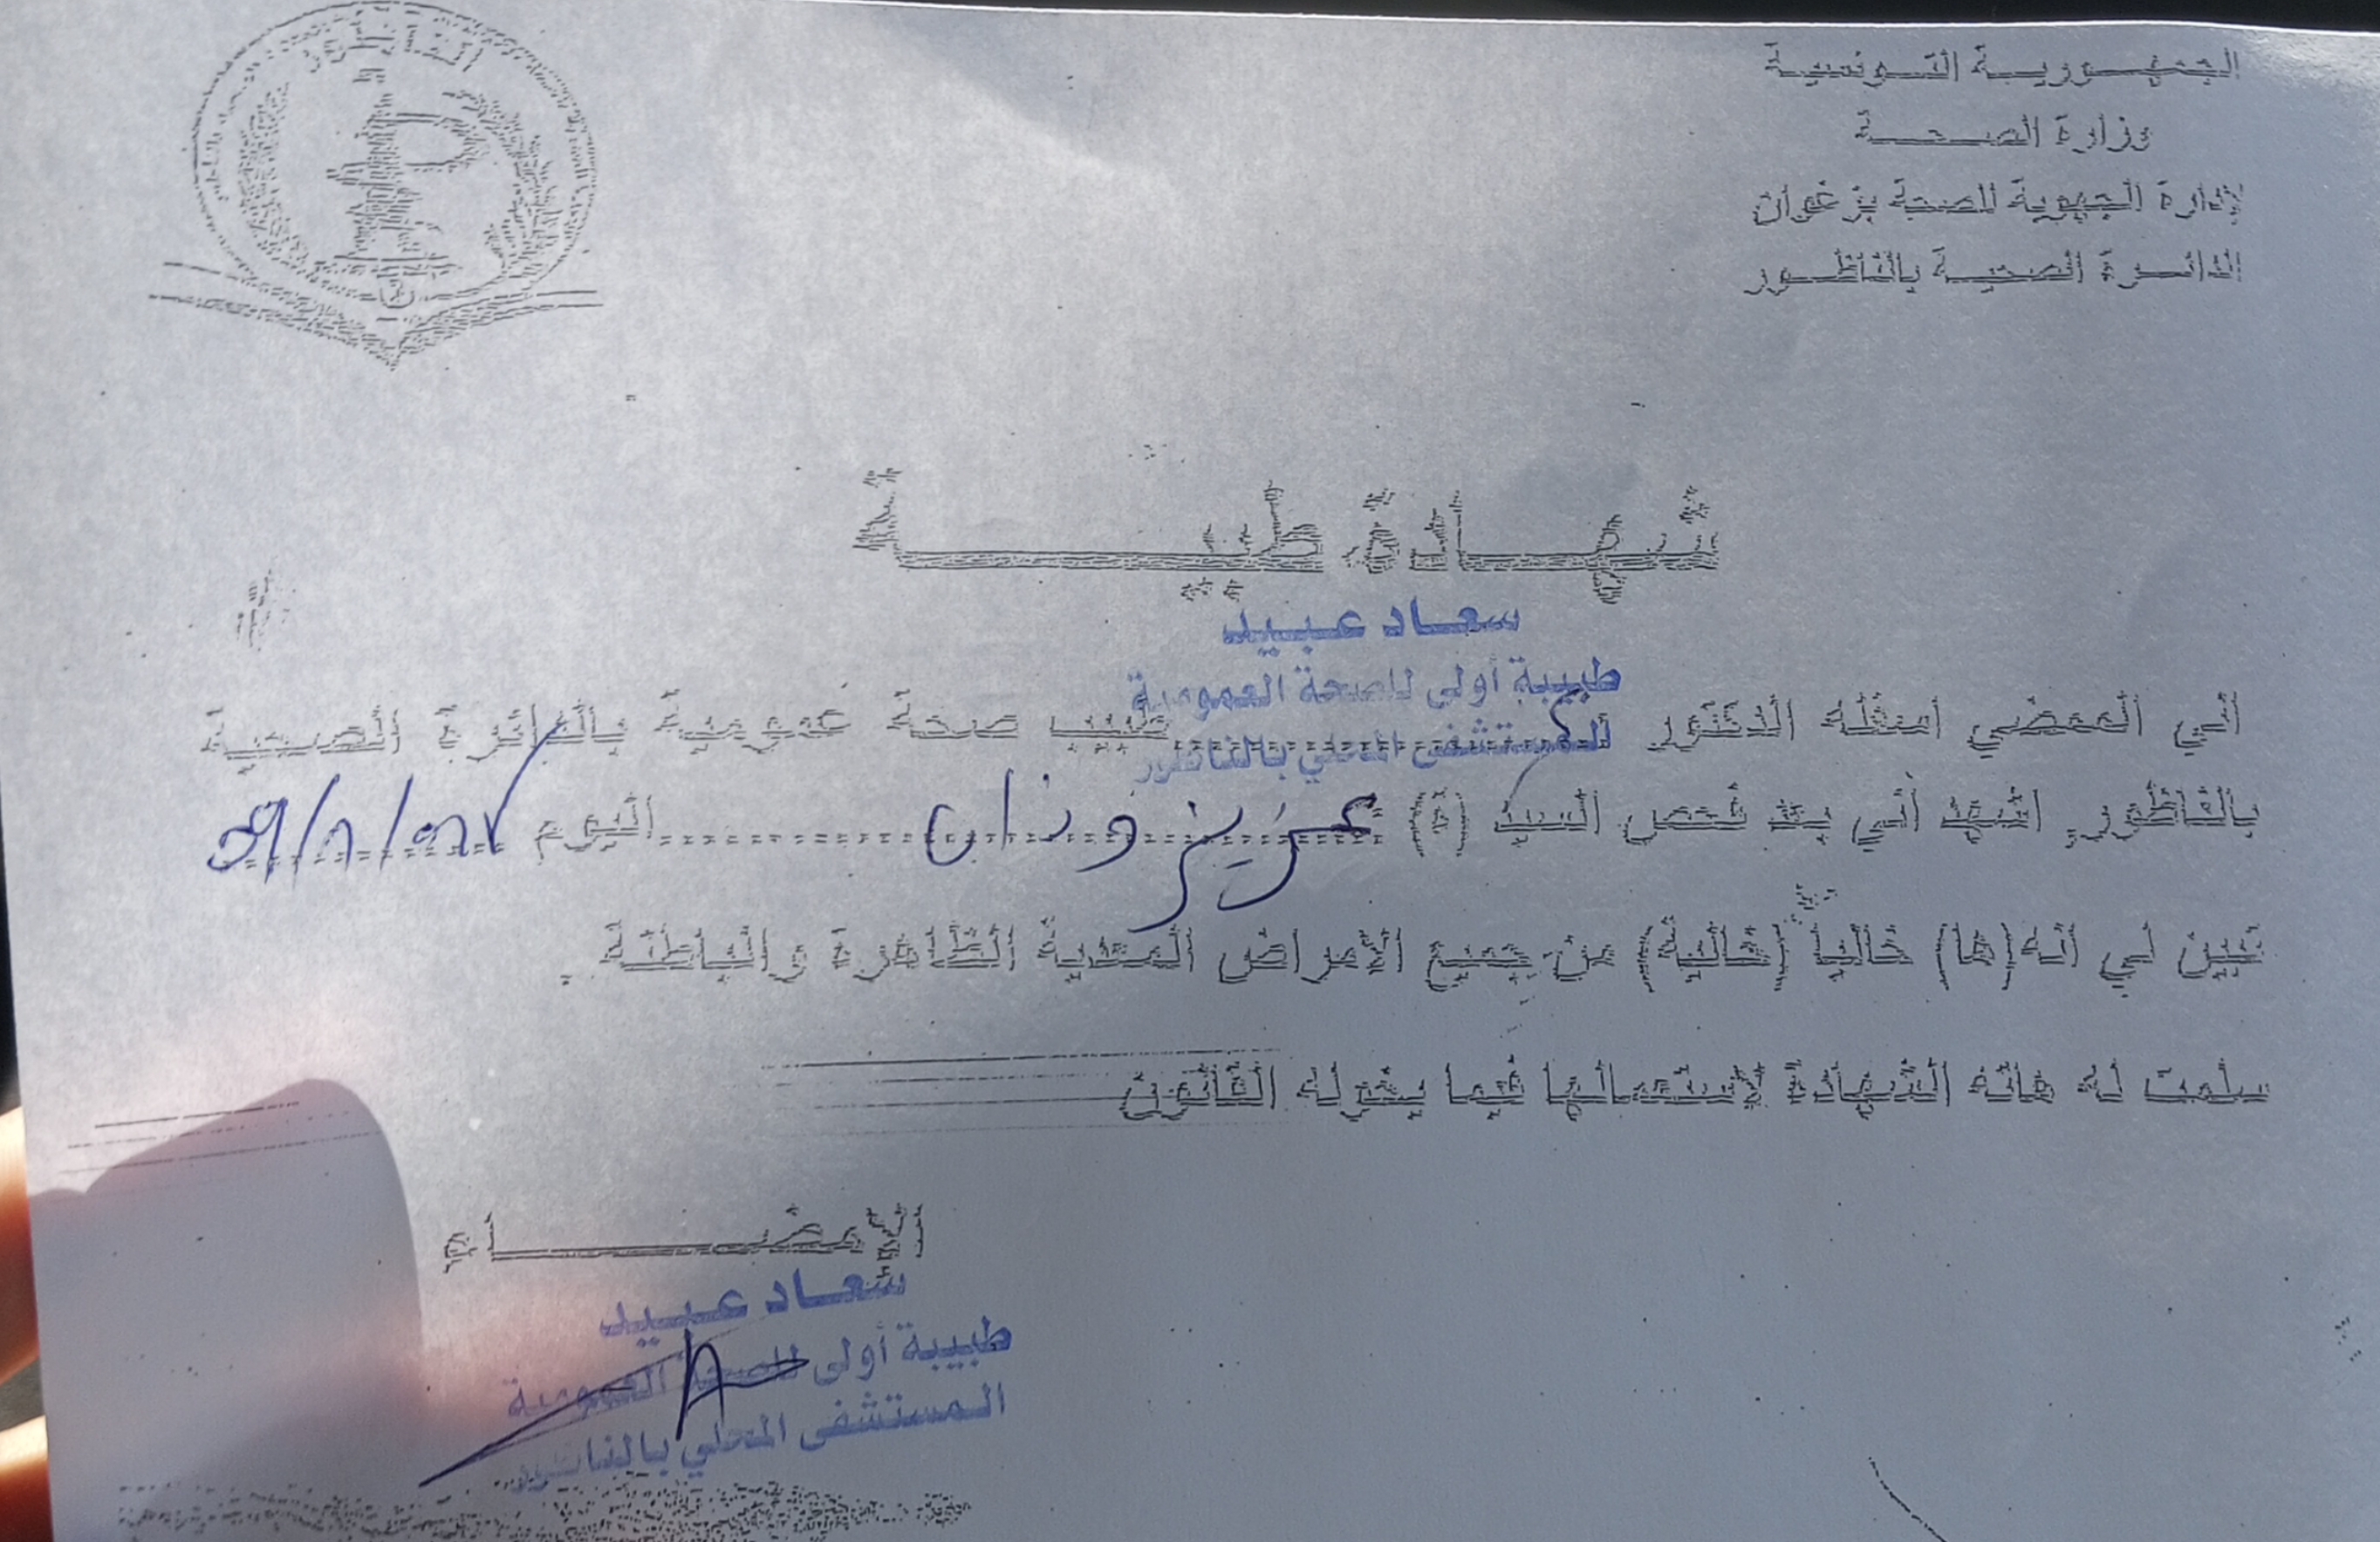 الناظور
الجمهورية التونسية
وزارة الصحة
الإدارة الجهوية للصحة بزغوان
الدائرة الصحية بالناظور
شهادة طبية
سعاد عبيد
طبيبة أولى للصحة العمومية
المستشفى المحلي بالناظور
اني الممضي اسفله الدكتور طبيب صحة عمومية بالدائرة الصحية
بالناظور اشهد أني بعد فحص السيد (ة) عزيز وزان اليوم
تبين لي أنه(ها) خاليا (خالية) من جميع الأمراض المعدية الظاهرة والباطنة .
سلمت له هاته الشهادة لإستعمالها فيما يخوله القانون
الإمضاء
سعاد عبيد
طبيبة أولى للصحة العمومية
المستشفى المحلي بالناظور